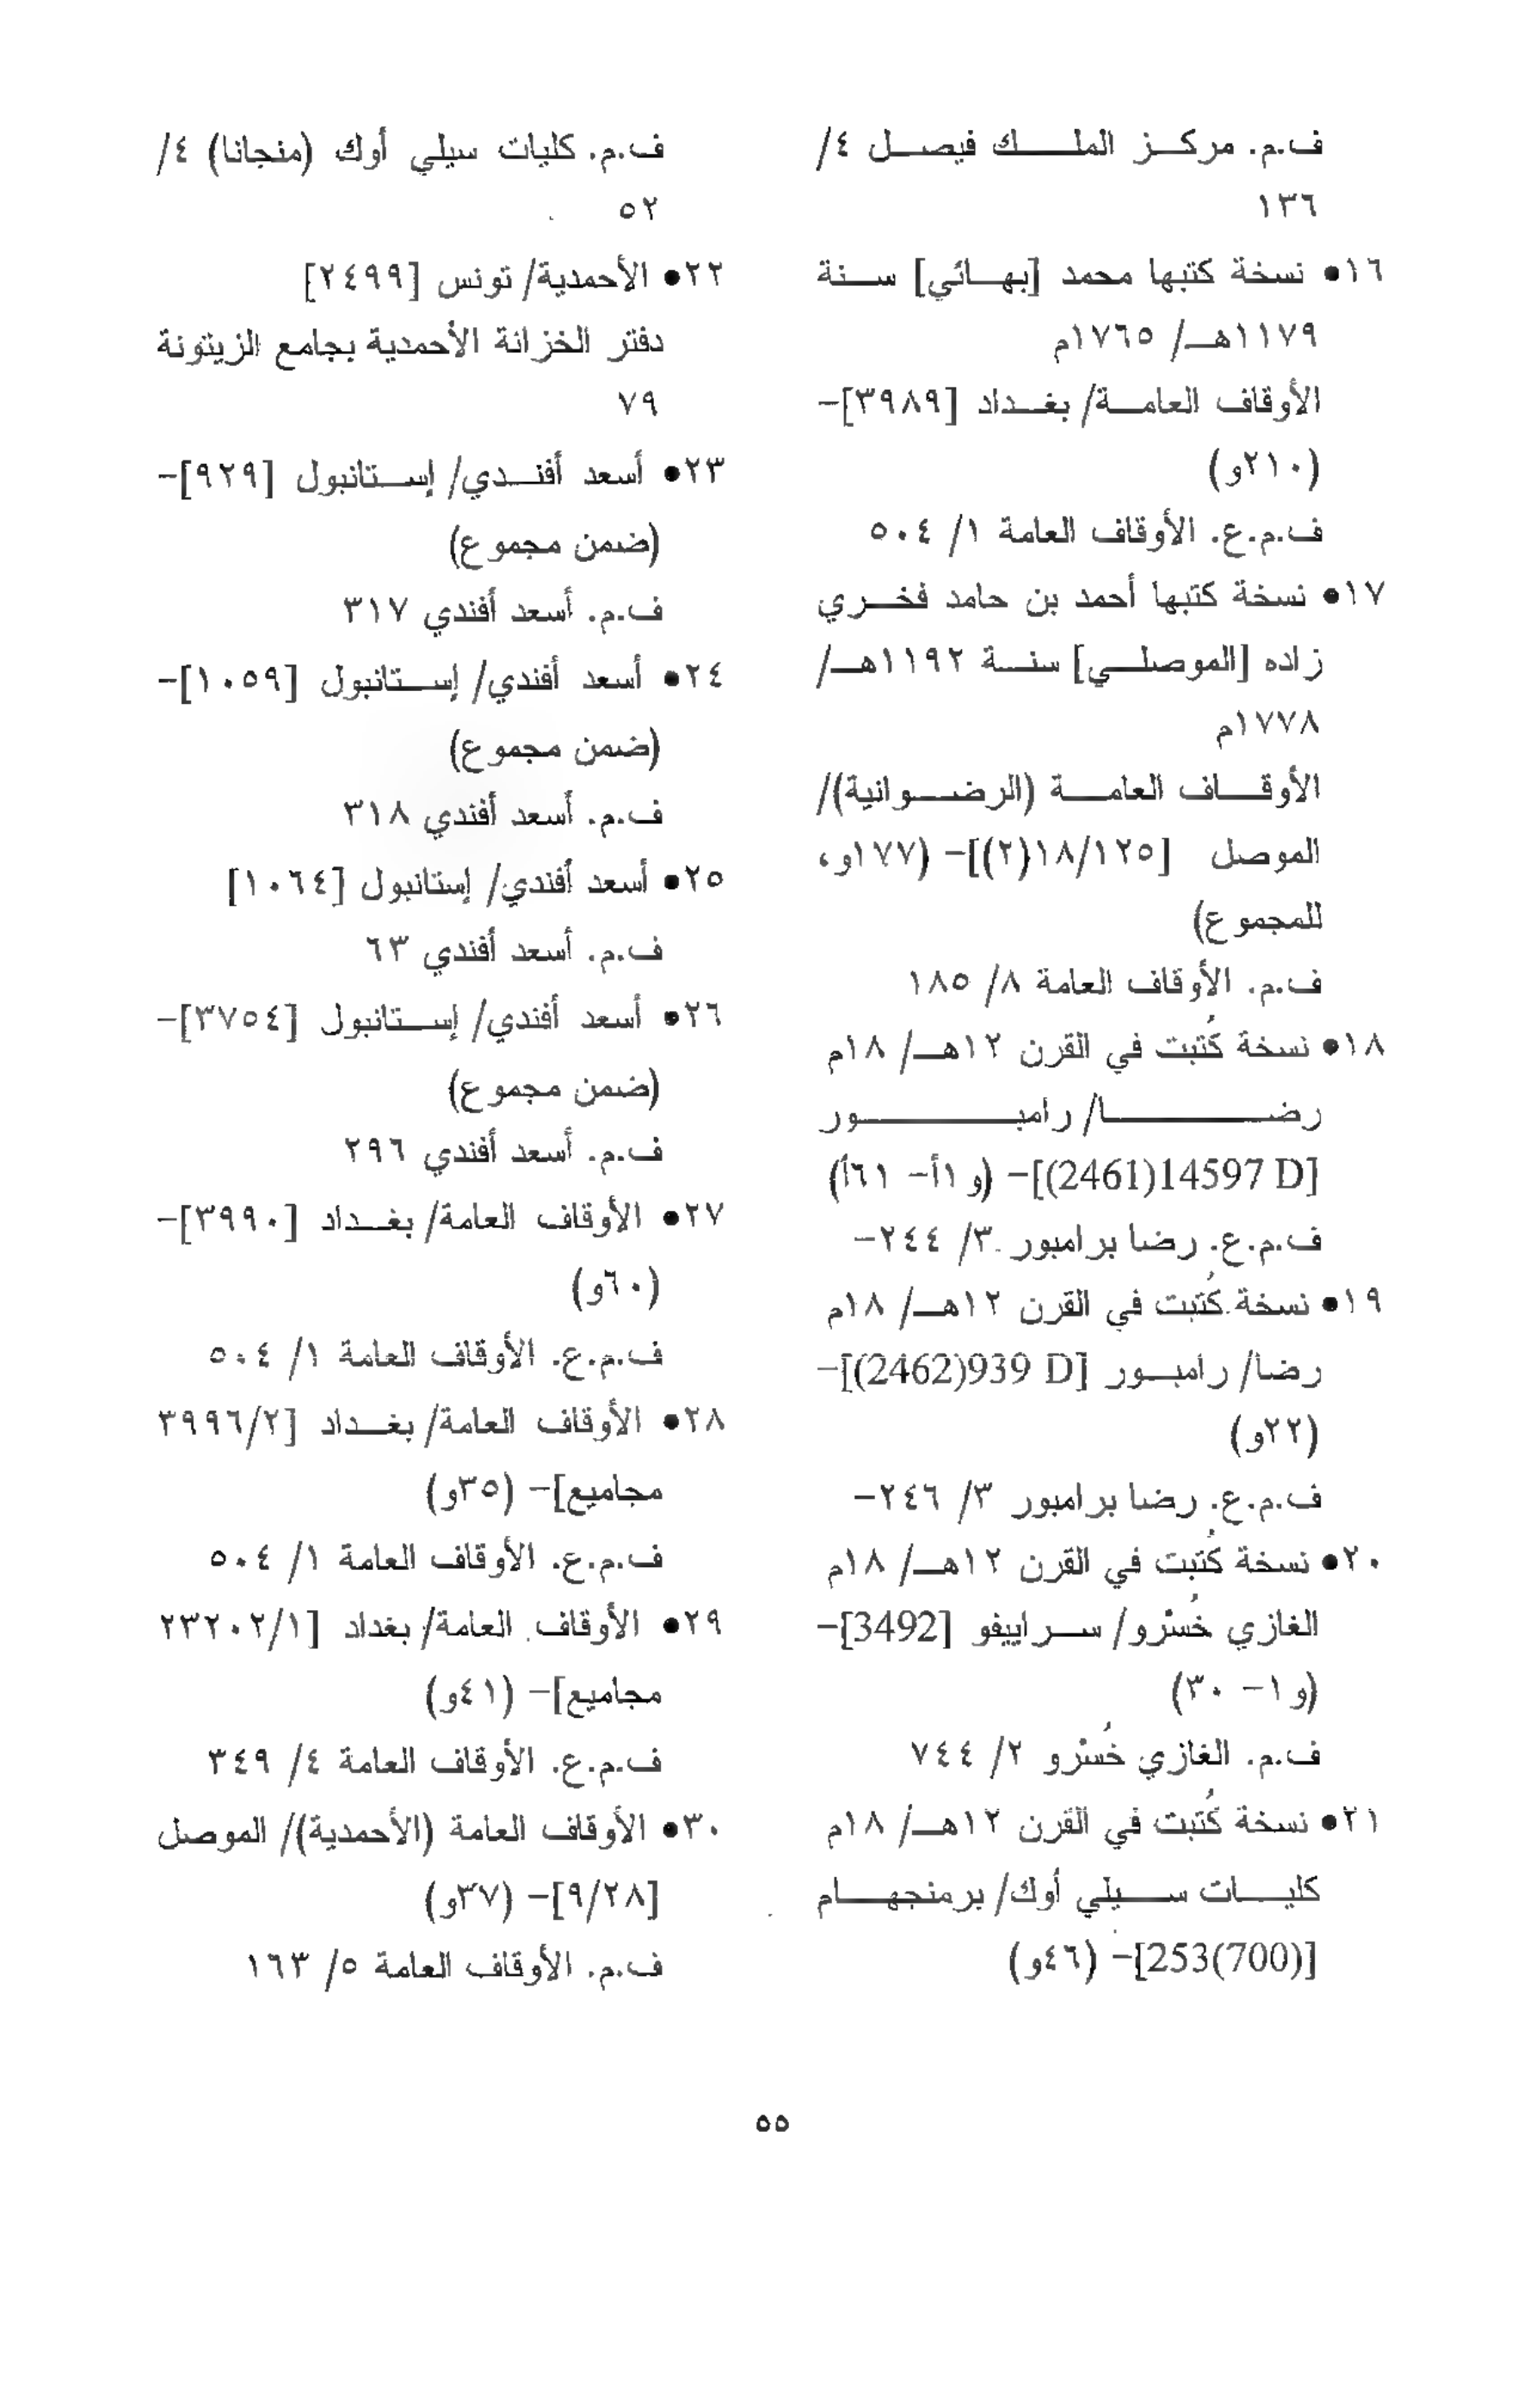 ف.م. مركز الملك فيصل ٤/
١٣٦
١٦• نسخة كتبها محمد [بهائي] سنة
١١٧٩هـ/ ١٧٦٥م
الأوقاف العامة/ بغداد [٣٩٨٩]-
(٢١٠و)
ف.م.ع. الأوقاف العامة ١/ ٥٠٤
١٧• نسخة كتبها أحمد بن حامد فخري
زاده [الموصلي] سنة ١١٩٢هـ/
١٧٧٨م
الأوقاف العامة (الرضوانية)/
الموصل [١٨/١٢٥(٢)]- (١٧٧و،
للمجموع)
ف.م. الأوقاف العامة ٨/ ١٨٥
١٨• نسخة كُتبت في القرن ١٢هـ/ ١٨م
رضا/ رامبور
[14597 D(2461)]- (و ١أ- ٦١أ)
ف.م.ع. رضا برامبور ٣/ ٢٤٤-
١٩• نسخة كُتبت في القرن ١٢هـ/ ١٨م
رضا/ رامبور [939 D(2462)]-
(٢٢و)
ف.م.ع. رضا برامبور ٣/ ٢٤٦-
٢٠• نسخة كُتبت في القرن ١٢هـ/ ١٨م
الغازي خُسْرو/ سراييفو [3492]-
(و ١- ٣٠)
ف.م. الغازي خُسْرو ٢/ ٧٤٤
٢١• نسخة كُتبت في القرن ١٢هـ/ ١٨م
كليات سيلي أوك/ برمنجهام
[253(700)]- (٤٦و)
ف.م. كليات سيلي أوك (منجانا) ٤/
٥٢
٢٢• الأحمدية/ تونس [٢٤٩٩]
دفتر الخزانة الأحمدية بجامع الزيتونة
٧٩
٢٣• أسعد أفندي/ إستانبول [٩٢٩]-
(ضمن مجموع)
ف.م. أسعد أفندي ٣١٧
٢٤• أسعد أفندي/ إستانبول [١٠٥٩]-
(ضمن مجموع)
ف.م. أسعد أفندي ٣١٨
٢٥• أسعد أفندي/ إستانبول [١٠٦٤]
ف.م. أسعد أفندي ٦٣
٢٦• أسعد أفندي/ إستانبول [٣٧٥٤]-
(ضمن مجموع)
ف.م. أسعد أفندي ٢٩٦
٢٧• الأوقاف العامة/ بغداد [٣٩٩٠]-
(٦٠و)
ف.م.ع. الأوقاف العامة ١/ ٥٠٤
٢٨• الأوقاف العامة/ بغداد [٣٩٩٦/٢
مجاميع]- (٣٥و)
ف.م.ع. الأوقاف العامة ١/ ٥٠٤
٢٩• الأوقاف العامة/ بغداد [٢٣٢٠٢/١
مجاميع]- (٤١و)
ف.م.ع. الأوقاف العامة ٤/ ٣٤٩
٣٠• الأوقاف العامة (الأحمدية)/ الموصل
[٩/٢٨]- (٣٧و)
ف.م. الأوقاف العامة ٥/ ١٦٣
٥٥